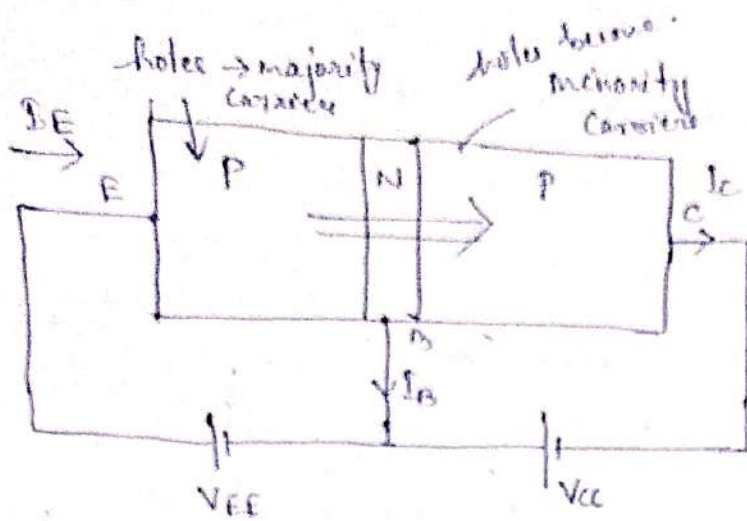 holes → majority
carriers
holes become
minority
carriers
IE
E
P
N
P
IC
C
B
IB
VEE
VCC